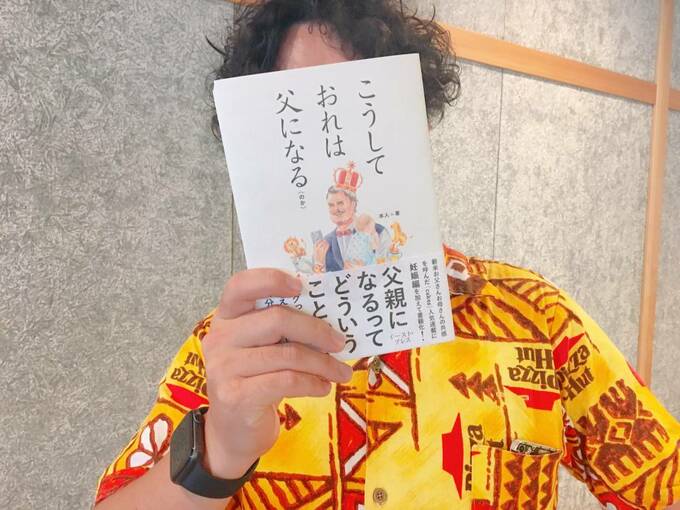 こうして
おれは
父になる
(のか)
本人=著
新米お父さんお母さんの共感
を呼んだ、cakes人気連載に
妊娠編を加えて書籍化!
イースト・プレス
父親に
なるって
どういう
こと
Pizza
Hut
Pizza
Hut
Pizza
Hut